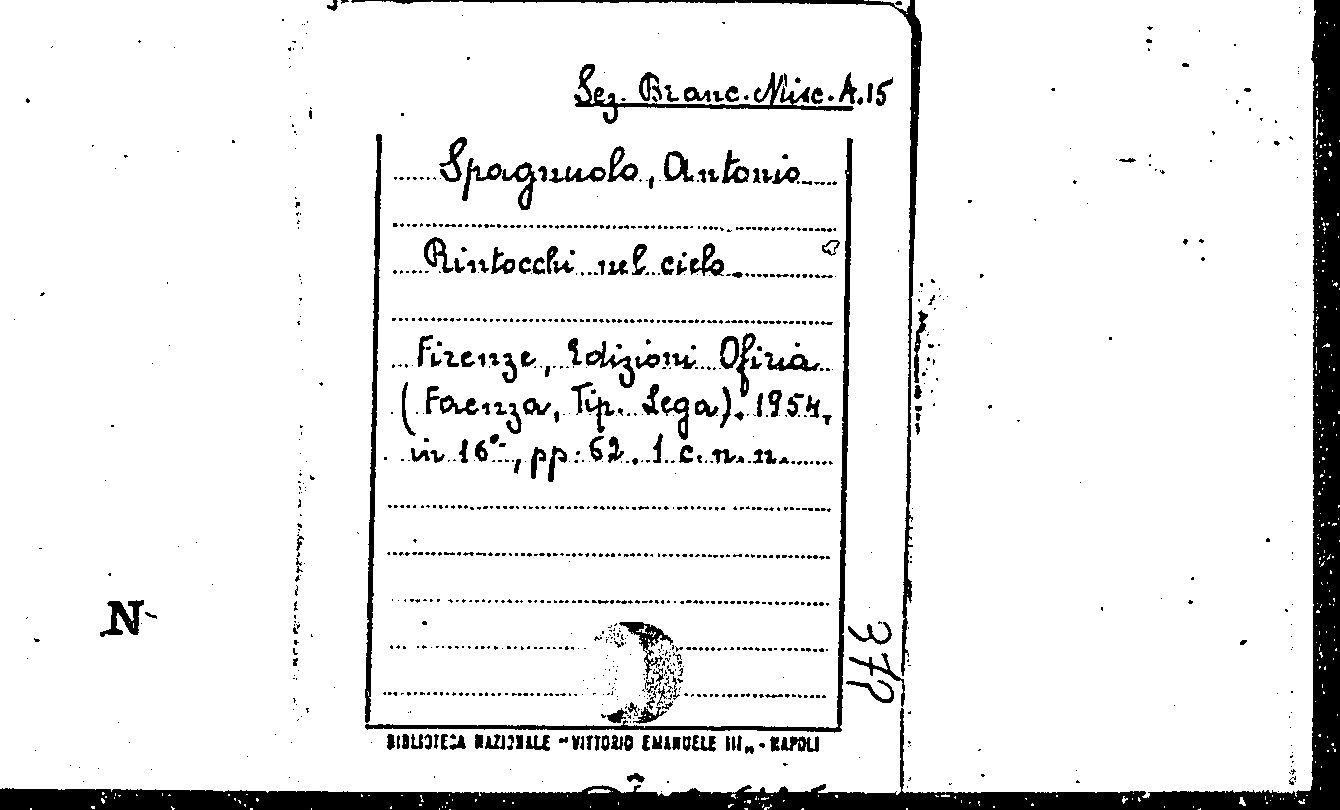 Sez. Branc. Misc. A.15
Spagnuolo, Antonio
Rintocchi nel cielo.
Firenze, Edizioni Ofiria
(Faenza, Tip. Lega). 1954,
in 16°, pp. 62. 1 c. n. n.
N
BIBLIOTECA NAZIONALE "VITTORIO EMANUELE III„ - NAPOLI